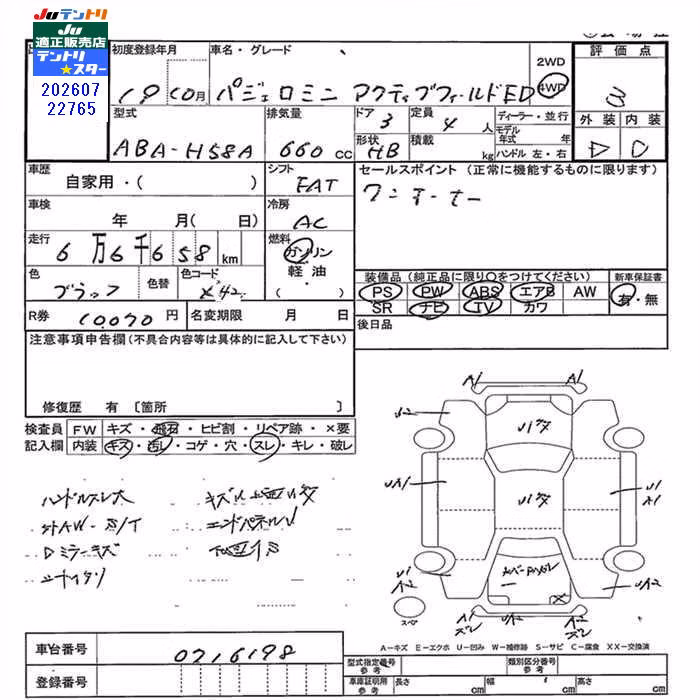 JUテントリ
JU
適正販売店
テントリ
★スター
202607
22765
初度登録年月
車名・グレード
19 10月
パジェロミニ アクティブフィールドED
2WD
4WD
評価点
3
外装 内装
D D
型式
ABA-H58A
排気量
660 cc
ドア 3
定員 4 人
形状 HB
積載 kg
ディーラー・並行
モデル年式 年
ハンドル 左・右
車歴
自家用・( )
シフト
FAT
セールスポイント (正常に機能するものに限ります)
ワンオーナー
車検
年 月( 日)
冷房
AC
走行
6万6千658km
燃料
ガソリン
軽油
( )
色
ブラック
色替
色コード
X42
装備品 (純正品に限り〇をつけてください)
PS PW ABS エアB AW
SR ナビ TV カワ
新車保証書
有・無
R券 10070 円
名変期限 月 日
後日品
注意事項申告欄(不具合内容等は具体的に記入して下さい)
修復歴 有〔箇所 〕
検査員 FW キズ・飛石・ヒビ割・リペア跡・×要
記入欄 内装 キズ・汚レ・コゲ・穴・スレ・キレ・破レ
ハンドルスレ大
外AW-キズ
Dミラーキズ
エンドパネルU
A1 A1
U2
U1キズ
UA1
U1キズ
U1
A1
U1
A2
UA2
A1
U2
A2
スペア
A-キズ E-エクボ U-凹み W-補修跡 S-サビ C-腐食 XX-交換済
車台番号
0216198
登録番号
型式指定番号
参考
類別区分番号
参考
車庫証明用
参考
長さ cm 幅 cm 高さ cm